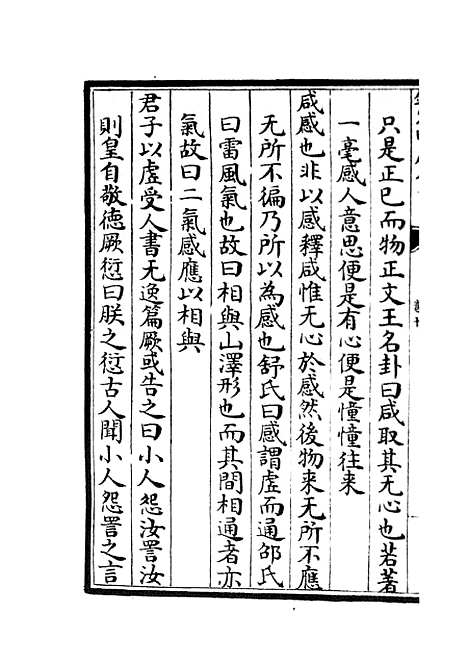 只是正己而物正文王名卦曰咸取其无心也若著
一毫感人意思便是有心便是憧憧往来
咸感也非以感釋咸惟无心於感然後物来无所不應
无所不徧乃所以為感也舒氏曰感謂虚而通邵氏
曰雷風氣也故曰相與山澤形也而其間相通者亦
氣故曰二氣感應以相與
君子以虚受人書无逸篇厥或告之曰小人怨汝詈汝
則皇自敬德厥愆曰朕之愆古人聞小人怨詈之言